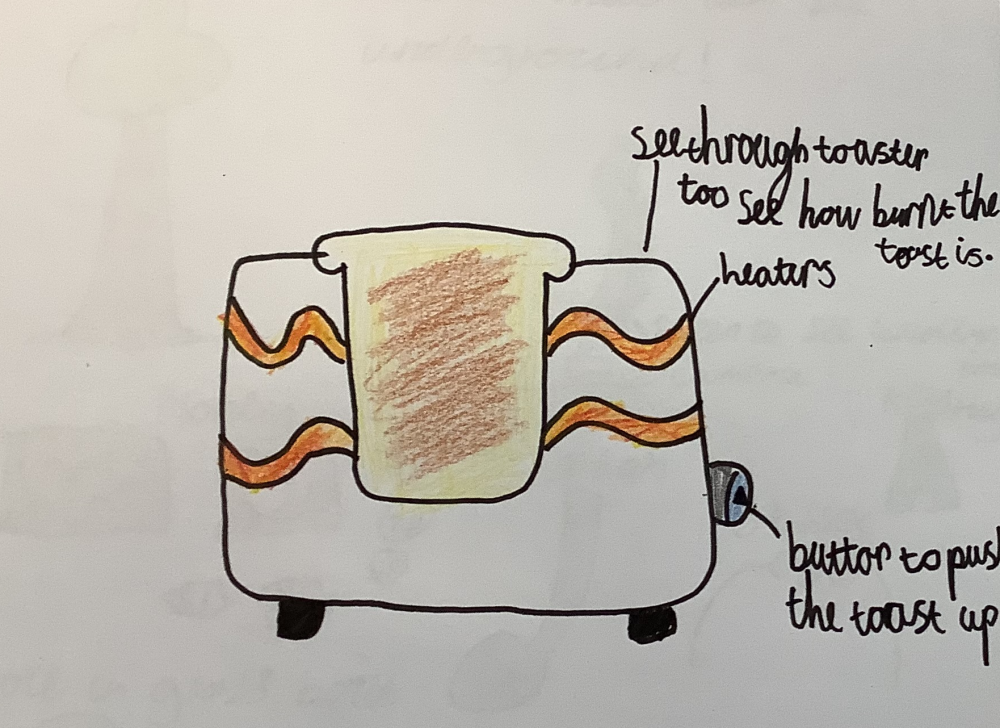 seethrough toaster
too see how burnt the
toast is.
heaters
button to pus
the toast up